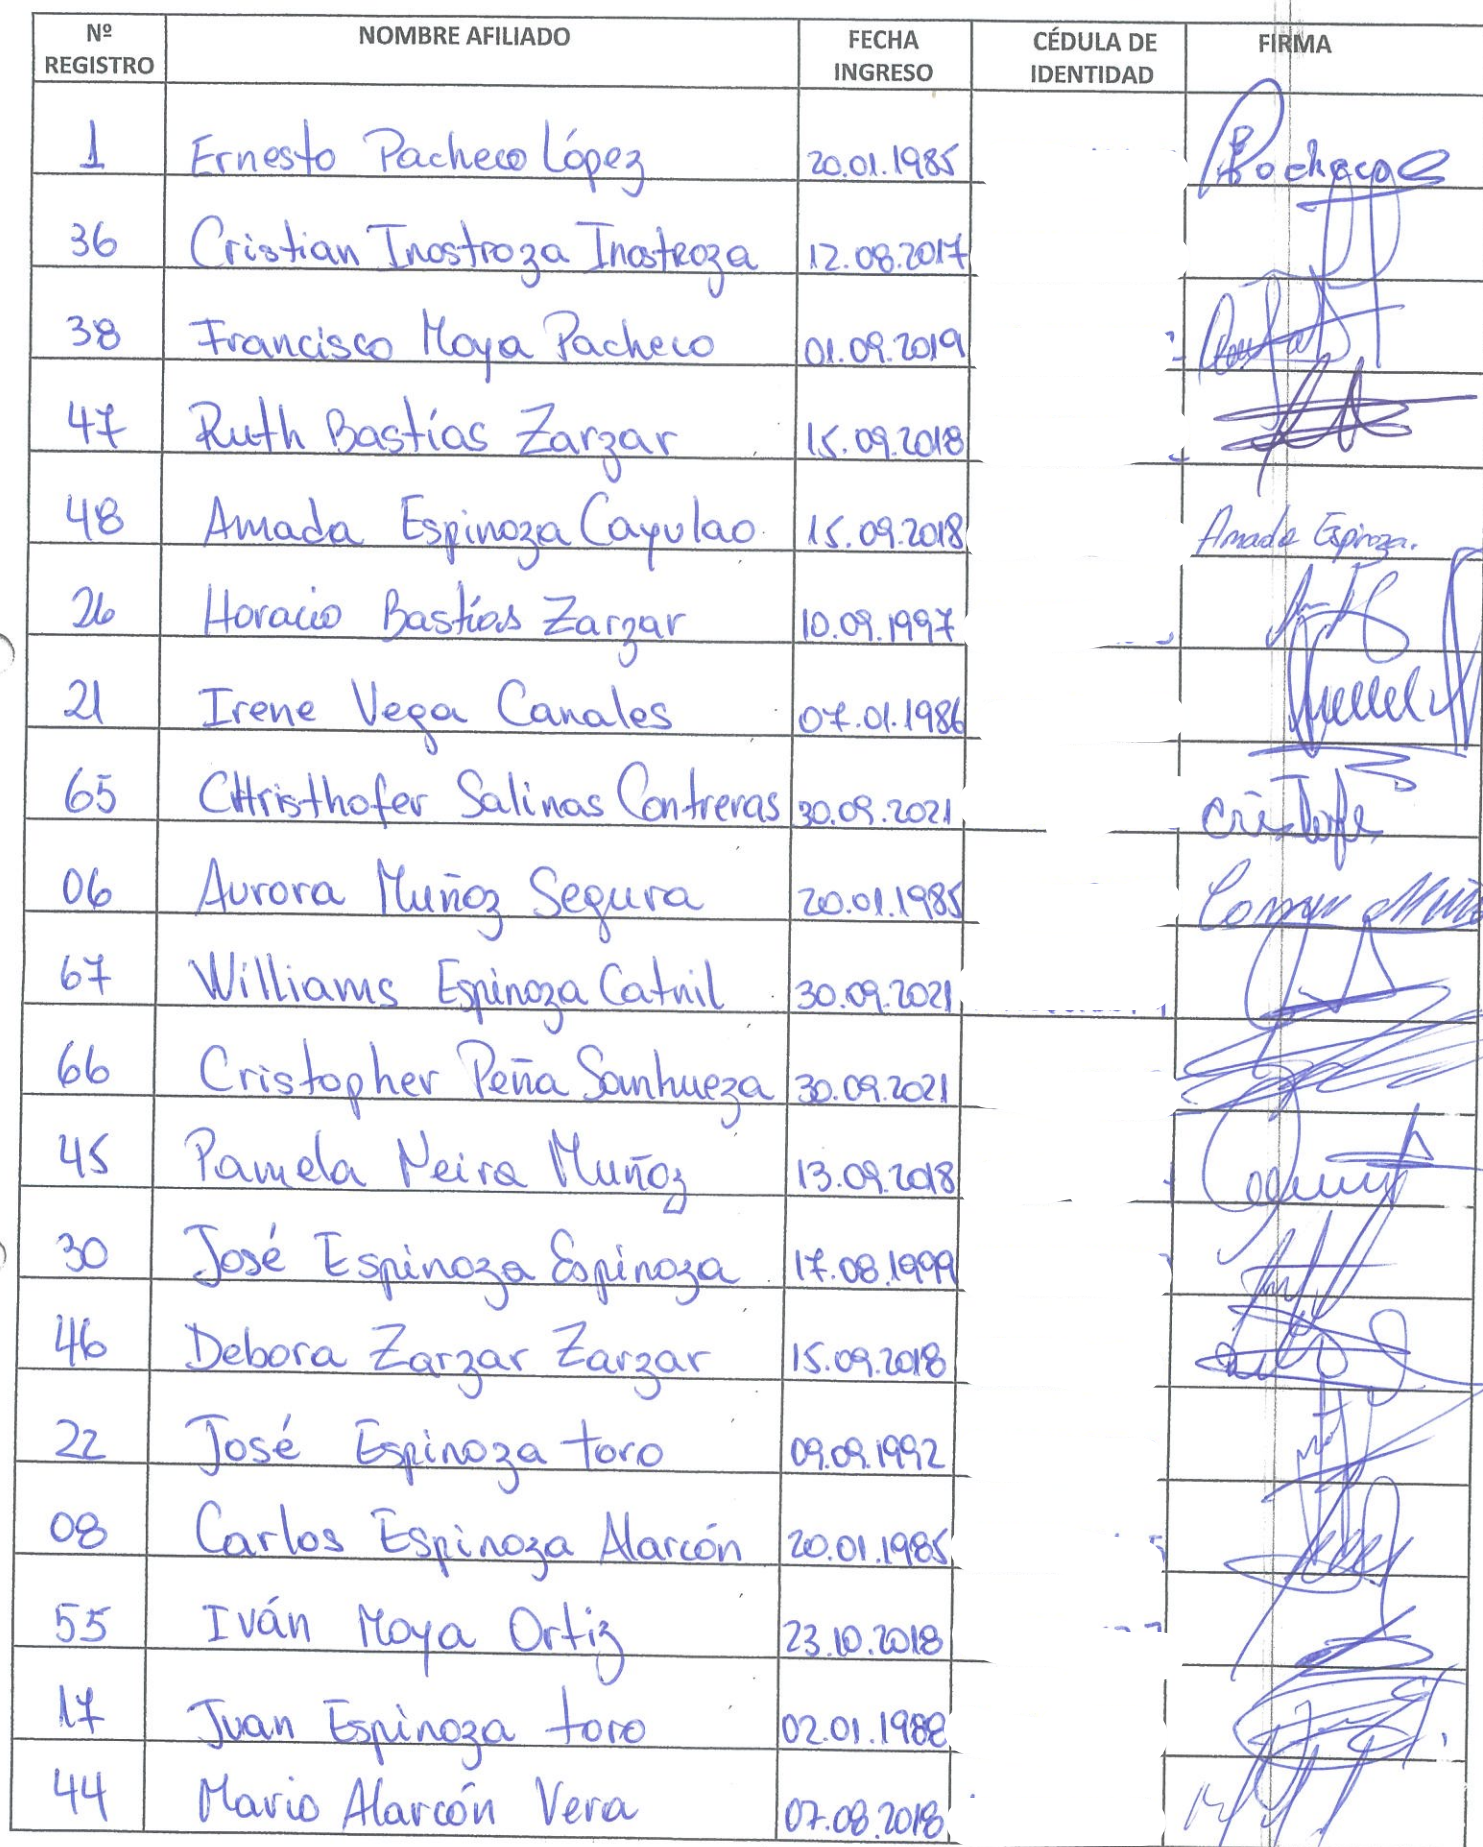 Nº REGISTRO NOMBRE AFILIADO FECHA INGRESO CÉDULA DE IDENTIDAD FIRMA
1 Ernesto Pacheco López 20.01.1985 Pacheco
36 Cristian Inostroza Inostroza 12.08.2017
38 Francisco Moya Pacheco 01.09.2019
47 Ruth Bastías Zarzar 15.09.2018
48 Amada Espinoza Cayulao 15.09.2018 Amada Espinoza.
26 Horacio Bastías Zarzar 10.09.1997
21 Irene Vega Canales 07.01.1986
65 CHristhofer Salinas Contreras 30.09.2021
06 Aurora Muñoz Segura 20.01.1985
67 Williams Espinoza Catnil 30.09.2021
66 Cristopher Peña Sanhueza 30.09.2021
45 Pamela Neira Muñoz 13.09.2018
30 José Espinoza Espinoza 17.08.1999
46 Debora Zarzar Zarzar 15.09.2018
22 José Espinoza toro 09.09.1992
08 Carlos Espinoza Alarcón 20.01.1985
55 Iván Moya Ortiz 23.10.2018
17 Juan Espinoza toro 02.01.1988
44 Mario Alarcón Vera 07.08.2018